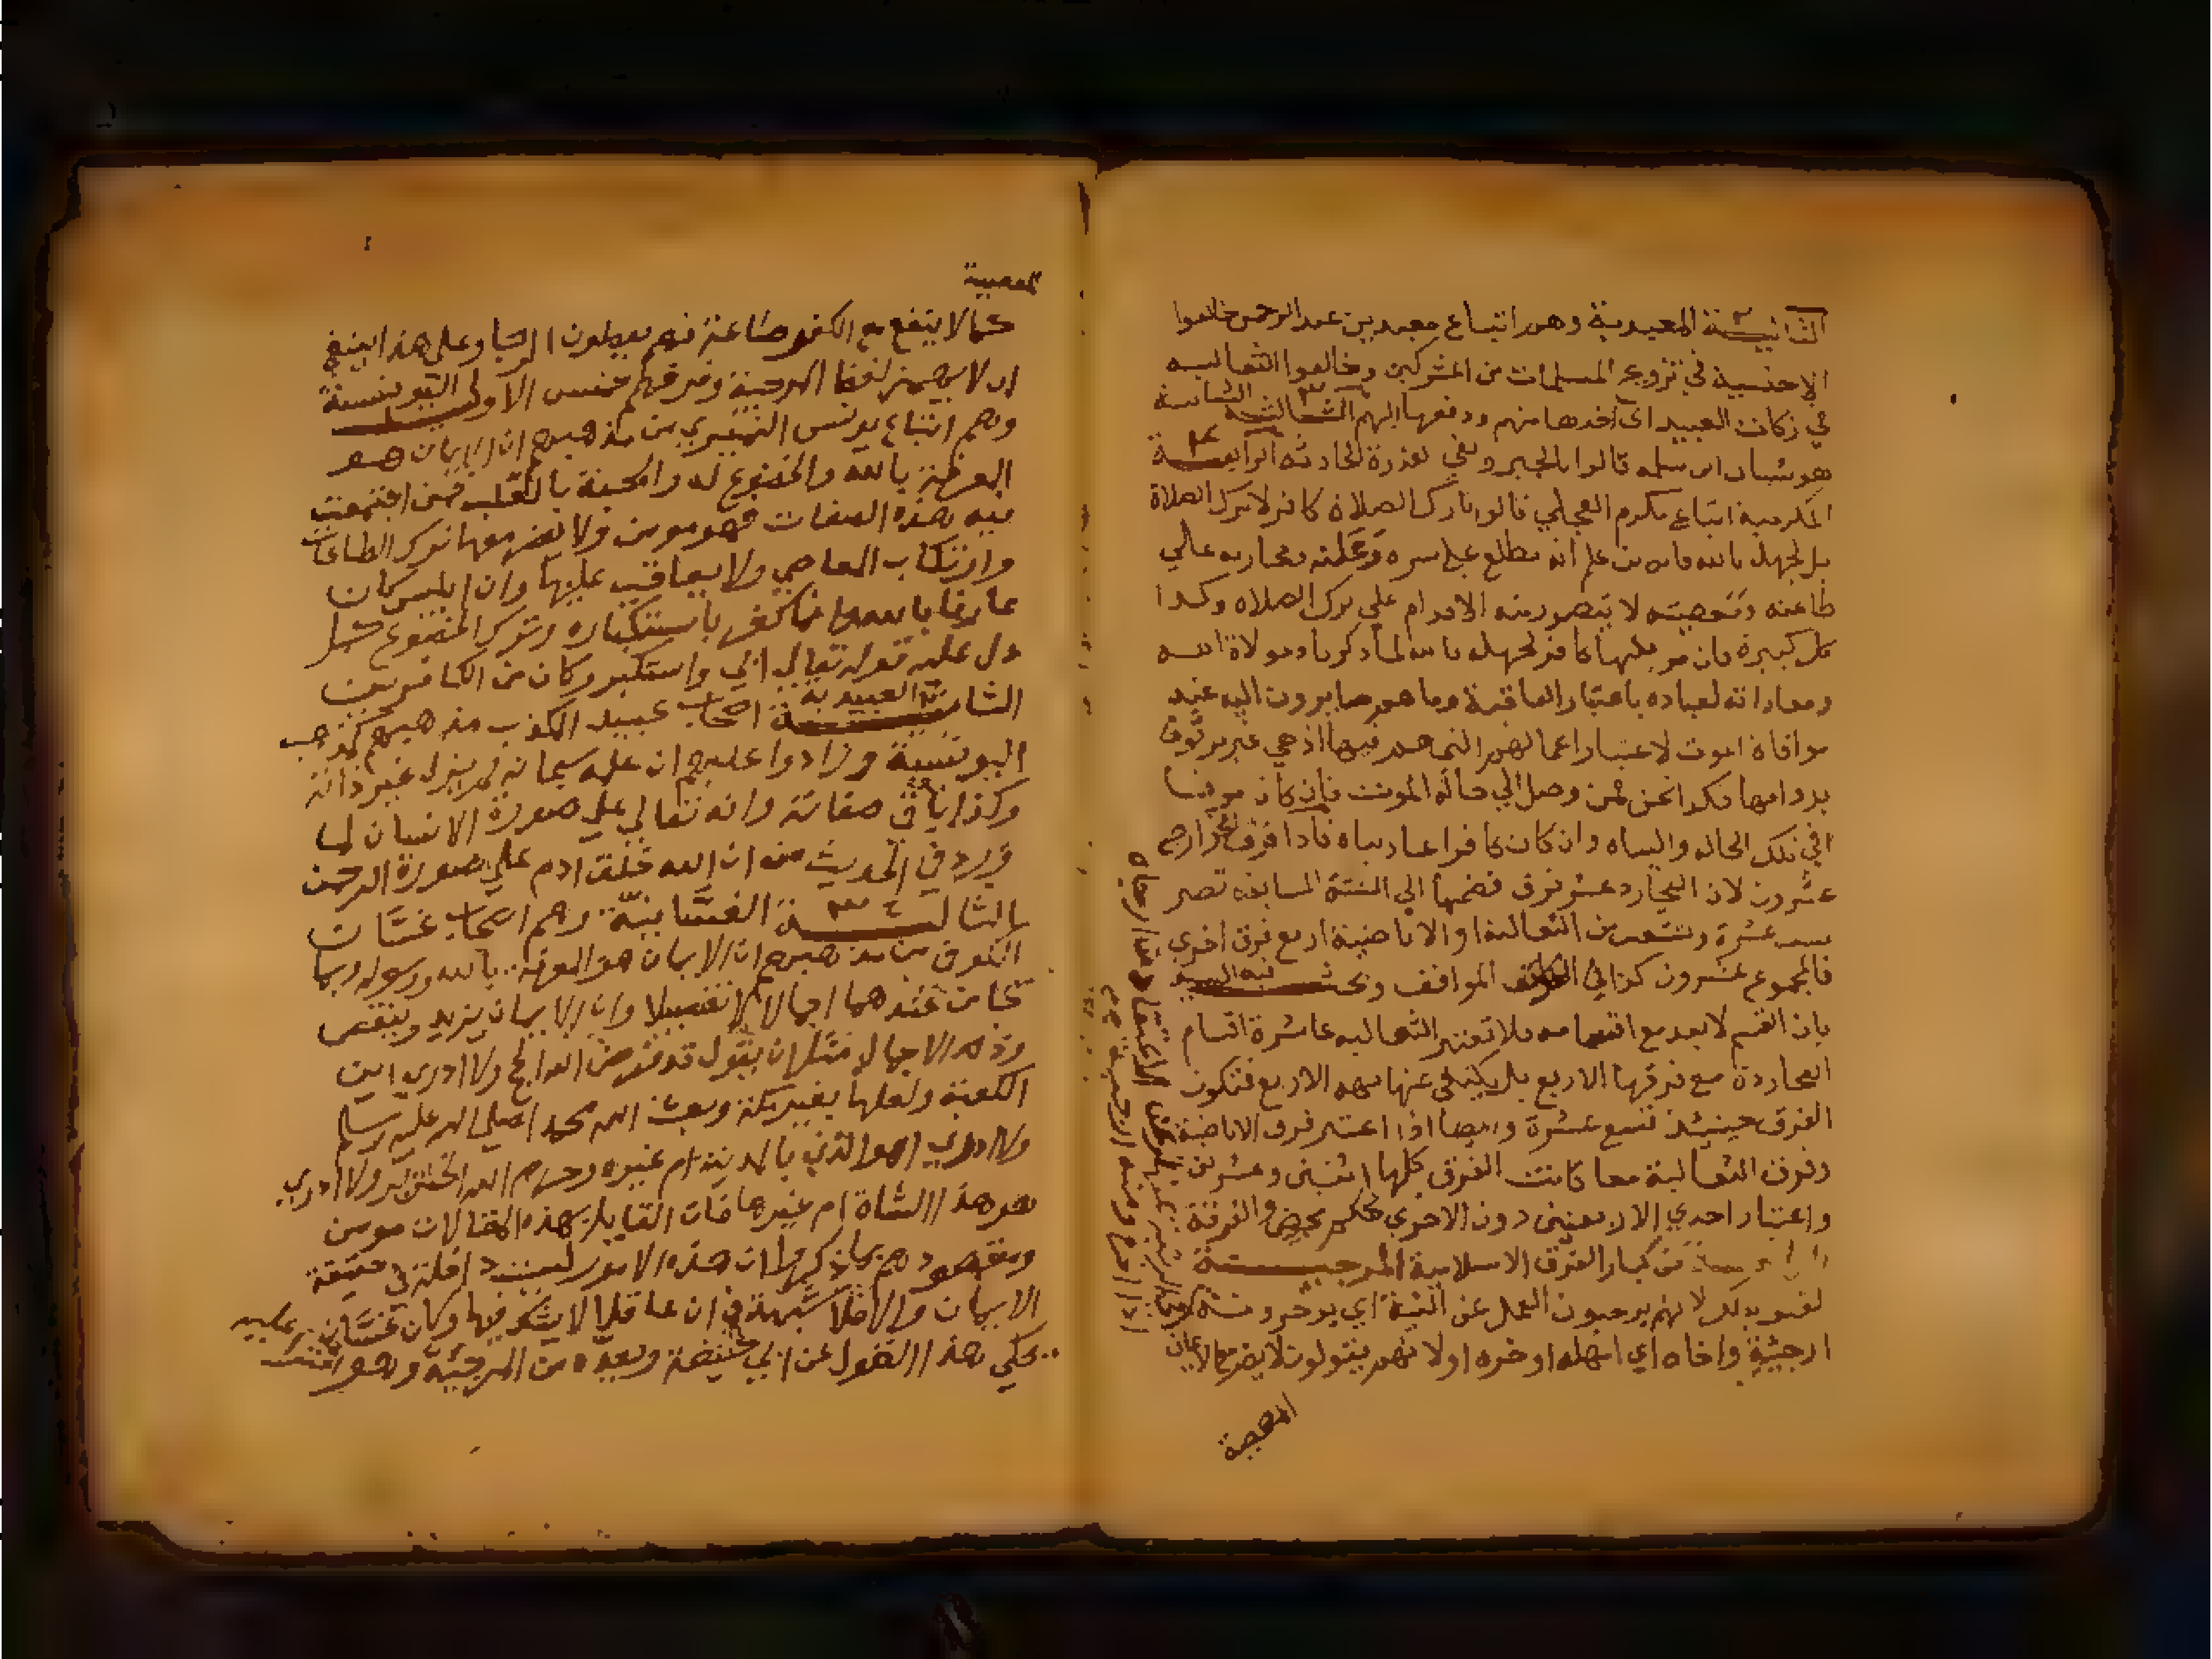 الثانيــة المعبدية وهم اتباع معبد بن عبد الرحمن خالفوا
الاخنسية في تزويج المسلمات من المشركين وخالفوا الثعالبه
في زكات العبيد اى اخدها منهم ودفعها اليهم الثالثه الشيبانية
هو شيبان ابن سلمه قالوا بالجبر ونفي القدرة الحادثه الرابعــة
المكرمية اتباع مكرم العجلي قالوا تارك الصلاة كافر لا لترك الصلاة
بل لجهله بالله فان من علم انه مطلع على سره وعلنه ومجازيه على
طاعته ومعصيته لا يتصور منه الاقدام على ترك الصلاه وكذا
كل كبيرة فان مرتكبها كافر لجهله بالله لما ذكرنا وموالاة الله
ومعاداته لعباده باعتبار العاقبة وما هم صايرون اليه عند
موافاة الموت لا عتبار اعمالهم التي هم فيها اذ هي غير موثوق
بدوامها فكذا نحن فمن وصل الي حالة الموت فان كان مومنا
في تلك الحاله واليناه وان كان كافرا عاديناه فاذا فرق الخوارج
عشرون لان العجاردة عشر فرق فضمها الي الستة السابقه تصير
ستة عشرة وتتشعب من الثعالبة او الاباضية اربع فرق اخري
فالمجموع عشرون كذا في المواقف وبحث فيه السيد
بان القسم لا يعد مع اقسامه فلا تعتبر الثعالبه عاشرة اقسام
العجاردة مع فرقها الاربع بل يكتفى عنها بهذه الاربع فتكون
الفرق حينيئذ تسع عشرة وايضا اذا اعتبر فرق الاباضية
وفرق الثعالبة معا كانت الفرق كلها اثنين وعشرين
واعتبار احدي الاربعين دون الاخري تحكم محض والفرقة
من كبار الفرق الاسلامية المرجيــــة
لقبو بذلك لانهم يرجيون العمل عن النية اي يوخرونه
ارجيئة واخاه اي امهله واخره اولا نهم يقولون لا يضر مع الايمان
المعصية
المعصية
كما لا ينفع مع الكفر طاعة فهم يعطون الرجا وعلى هذا ينبغي
ان لا يهمز لفظ المرجية وفرقهم خمس الاولى اليونسية
وهم اتباع يونس النميري من مذهبهم ان الايمان هو
المعرفة بالله والخضوع له والمحبة بالقلب فمن اجتمعت
فيه هذه الصفات فهو مومن ولا يضر معها ترك الطاعات
وارتكاب المعاصي ولا يعاقب عليها وان ابليس كان
عارفا بالله وانما كفر باستكباره وترك الخضوع كما
دل عليه قوله تعالي ابي واستكبر وكان من الكافرين
الثانيــة العبيدية اصحاب عبيد المكذب مذهبهم كمذهب
اليونسية وزادوا عليهم ان علمه سبحانه لم يزل غير ذاته
وكذا باقي صفاته وانه تعالي على صورة الانسان لما
ورد في الحديث من ان الله خلق ادم على صورة الرحمن
الثالثــة الغسّانيّة وهم اصحاب غسّان
الكوفي من مذهبهم ان الايمان هو المعرفة بالله ورسوله وبما
جا من عندهما اجمالا لا تفصيلا وان الايمان يزيد وينقص
وذلك الاجمال مثل ان يقول قد فرض الله الحج ولا ادري اين
الكعبة ولعلها بغير مكة وبعث الله محمدا صلى الله عليه وسلم
ولا ادري اهو الذي بالمدينة ام غيره وحرم الله الخنزير ولا ادري
هو هذا الشاة ام غيرها فان القايل بهذه المقالات مومن
ومقصودهم بما ذكروا ان هذه الامور ليست داخلة في حقيقة
الايمان والا فلا شبهة في ان عاقلا لا يشك فيها وكان غسّان
يحكي هذا القول عن ابي حنيفة ويعدّه من المرجيّة وهو افترا عليه